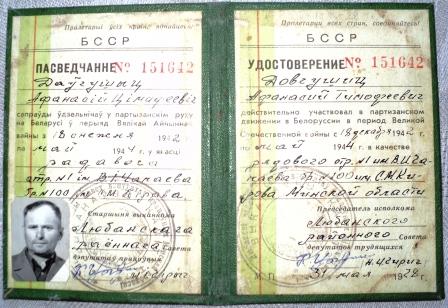 Пралетарыі ўсіх краін, яднайцеся!
БССР
ПАСВЕДЧАННЕ № 151642
Даўгушыц
Афанасій Цімафеевіч
сапраўды удзельнічаў у партызанскім руху
на Беларусі ў перыяд Вялікай Айчыннай
вайны з 1942 г.
па май 1944 г. у якасці
радавога
атр. №1 ім. В.І. Чапаева
бр. №100 ім. С.М. Кірава
Старшыня выканкома
Любанскага
раённага Савета
дэпутатаў працоўных
Пролетарии всех стран, соединяйтесь!
БССР
УДОСТОВЕРЕНИЕ № 151642
Довгушиц
Афанасий Тимофеевич
действительно участвовал в партизанском
движении в Белоруссии в период Великой
Отечественной войны с 18 декабря 1942 г.
по май 1944 г. в качестве
рядового отр. №1 им. В.И. Ча-
паева бр. №100 им. С.М. Ки-
рова Минской области
Председатель исполкома
Любанского
районного Совета
депутатов трудящихся
М. П. 31 мая